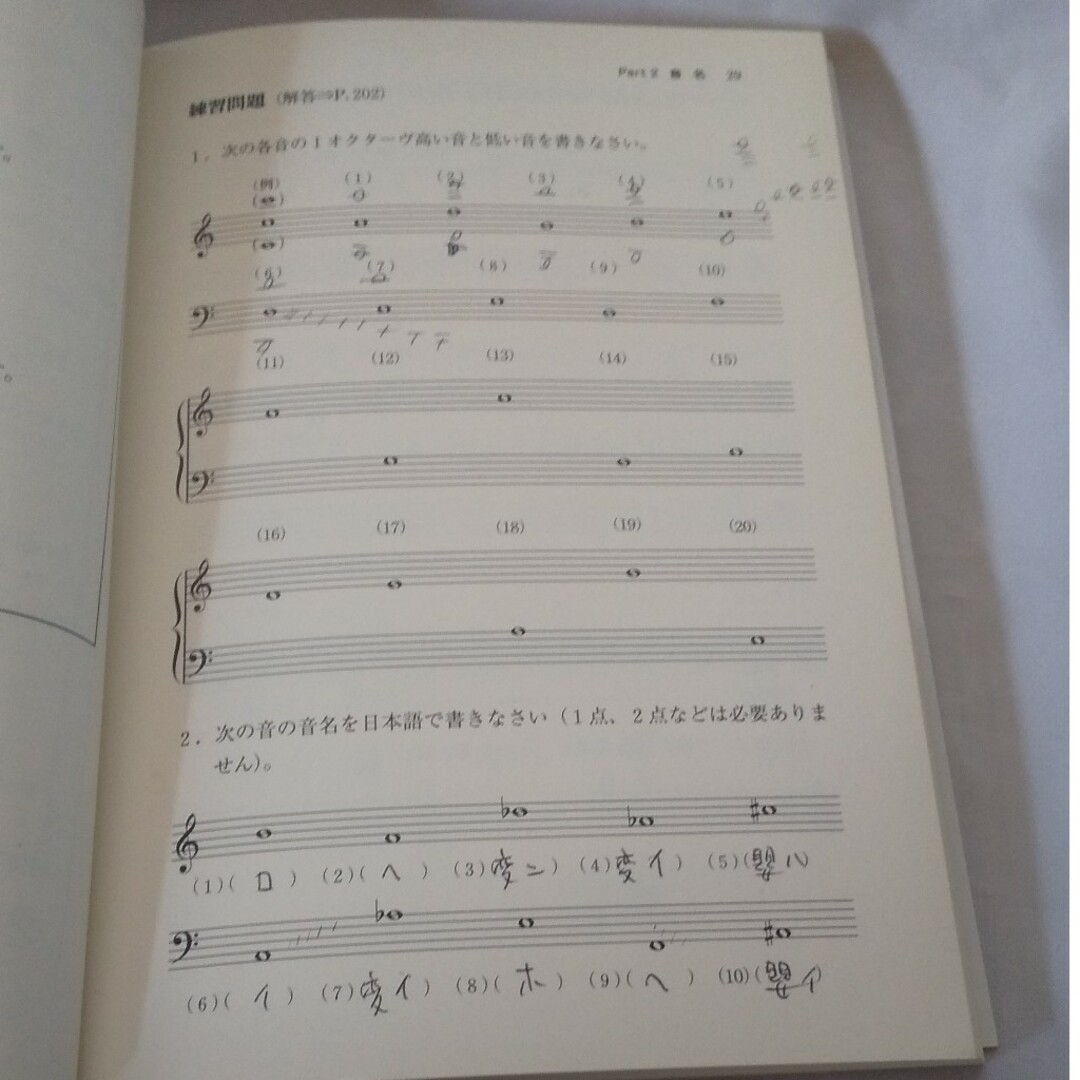 Part 2 音 名 29
練習問題 (解答⇒P.202)
1. 次の各音の1オクターヴ高い音と低い音を書きなさい。
(例) (1) (2) (3) (4) (5)
(6) (7) (8) (9) (10)
(11) (12) (13) (14) (15)
(16) (17) (18) (19) (20)
2. 次の音の音名を日本語で書きなさい（1点、2点などは必要ありま
せん)。
(1)( ロ ) (2)( ヘ ) (3)(変ニ) (4)(変イ) (5)(嬰ハ)
(6)( イ ) (7)(変イ) (8)( ホ ) (9)( ヘ ) (10)(嬰イ)
。
。